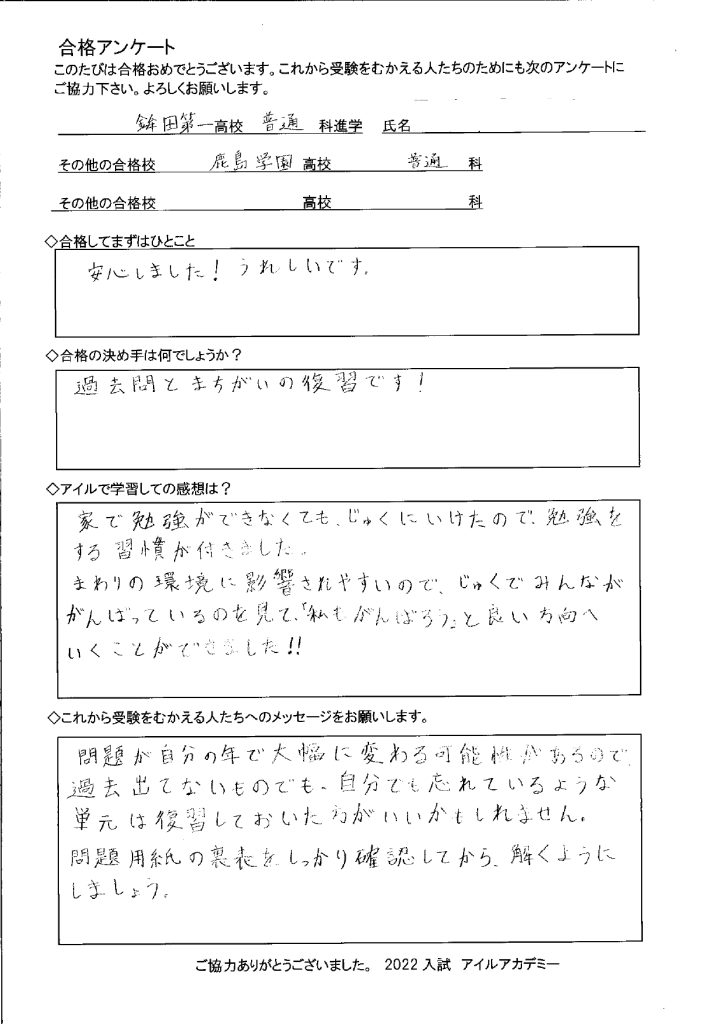 合格アンケート
このたびは合格おめでとうございます。これから受験をむかえる人たちのためにも次のアンケートに
ご協力下さい。よろしくお願いします。
鉾田第一高校 普通 科進学 氏名
その他の合格校 鹿島学園 高校 普通 科
その他の合格校 高校 科
◇合格してまずはひとこと
安心しました！うれしいです。
◇合格の決め手は何でしょうか？
過去問とまちがいの復習です！
◇アイルで学習しての感想は？
家で勉強ができなくても、じゅくにいけたので、勉強を
する習慣が付きました。
まわりの環境に影響されやすいので、じゅくでみんなが
がんばっているのを見て、「私もがんばろう」と良い方向へ
いくことができました!!
◇これから受験をむかえる人たちへのメッセージをお願いします。
問題が自分の年で大幅に変わる可能性があるので、
過去出てないものでも、自分でも忘れているような
単元は復習しておいた方がいいかもしれません。
問題用紙の裏表をしっかり確認してから、解くように
しましょう。
ご協力ありがとうございました。 2022入試 アイルアカデミー